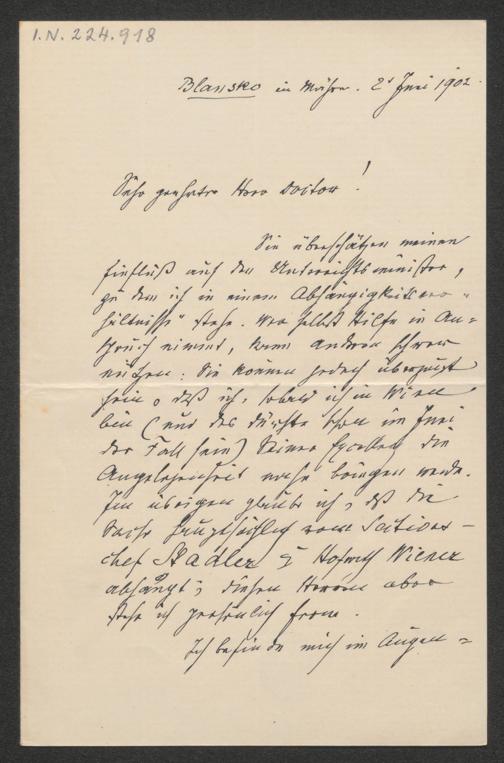 I.N. 224.918
Blansko in Mähren. 2t Juni 1902.
Sehr geehrter Herr Doctor!
Sie überschätzen meinen
Einfluß auf den Unterrichtsminister,
zu dem ich in einem Abhängigkeitsver-
hältnisse stehe. Wer selbst Hilfe in An-
spruch nimmt, kann andern schwer
nützen. Sie können jedoch überzeugt
sein, daß ich, sobald ich in Wien
bin (und das dürfte schon im Juni
der Fall sein) Seiner Excellenz die
Angelegenheit nahe bringen werde.
Im übrigen glaube ich, daß die
Sache hauptsächlich vom Sections-
chef Stadler & Hofrath Wiener
abhängt; diesen Herren aber
stehe ich persönlich fern.
Ich befinde mich im Augen-